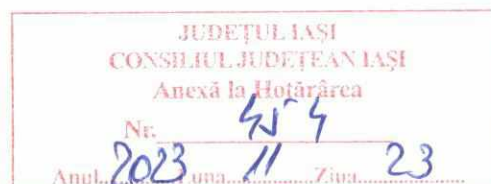 JUDEŢUL IAŞI
CONSILIUL JUDEŢEAN IAŞI
Anexă la Hotărârea
Nr. 454
Anul 2023 Luna 11 Ziua 23